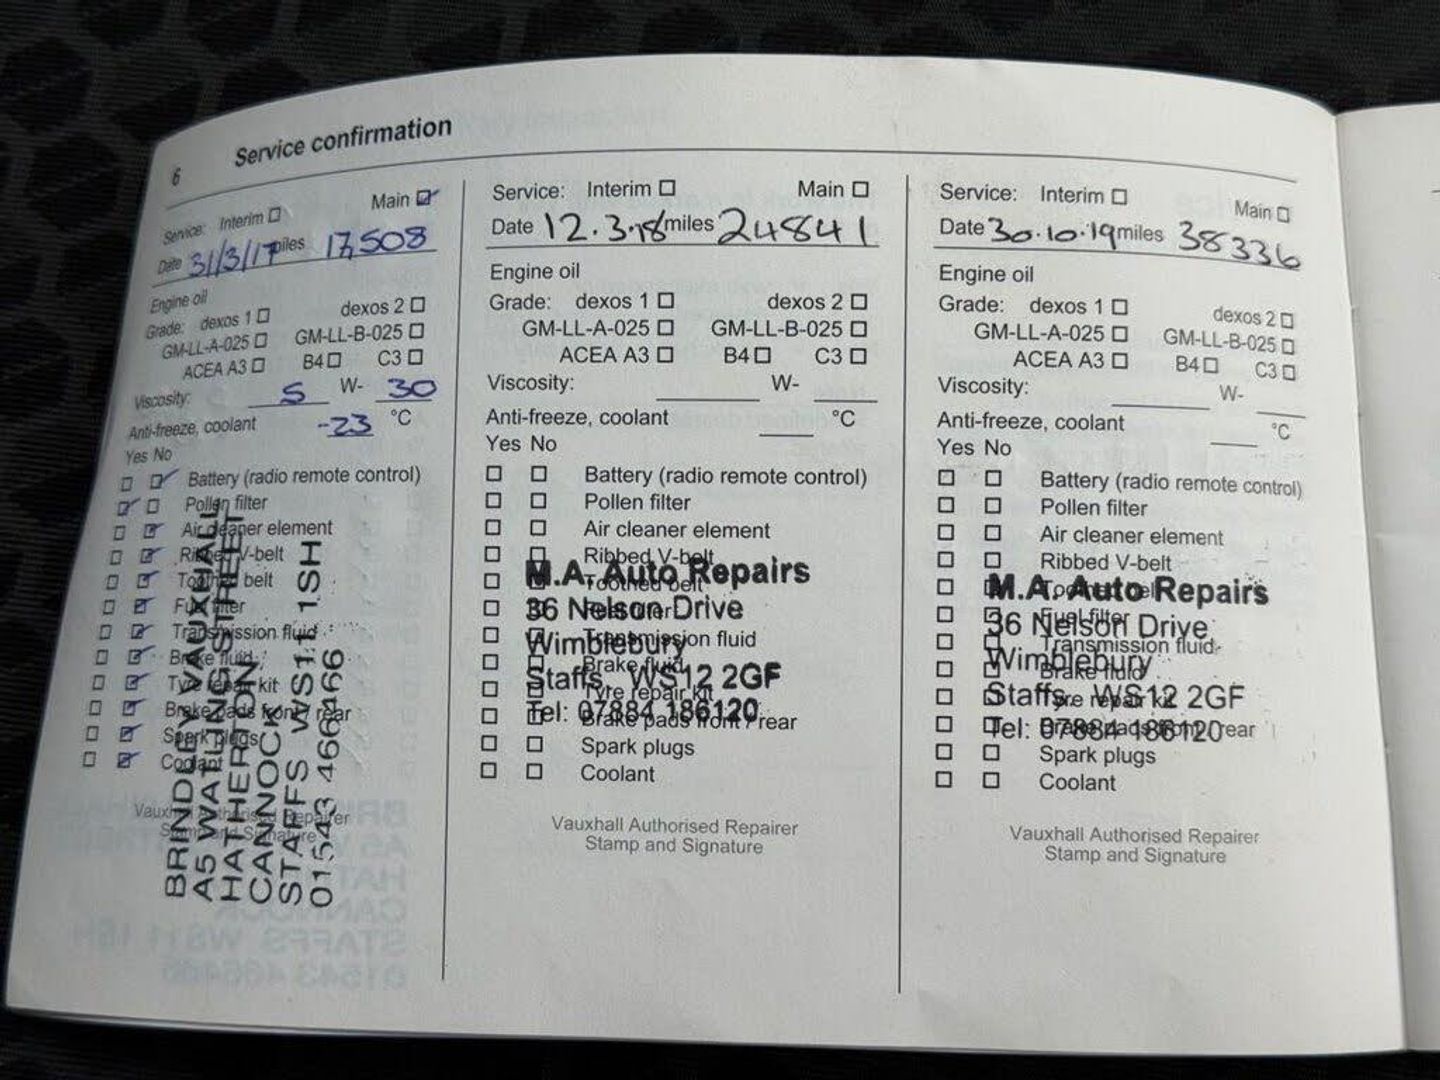 6 Service confirmation
Service: Interim Main
Date 31/3/17 miles 17,508
Engine oil
Grade: dexos 1 dexos 2
GM-LL-A-025 GM-LL-B-025
ACEA A3 B4 C3
Viscosity: 5 W- 30
Anti-freeze, coolant -23 °C
Yes No
Battery (radio remote control)
Pollen filter
Air cleaner element
Ribbed V-belt
Toothed belt
Fuel filter
Transmission fluid
Brake fluid
Tyre repair kit
Brake pads front / rear
Spark plugs
Coolant
Vauxhall Authorised Repairer
Stamp and Signature
BRINDLEY VAUXHALL
A5 WATLING STREET
HATHERTON
CANNOCK
STAFFS WS11 1SH
01543 466466
Service: Interim Main
Date 12.3.18 miles 24841
Engine oil
Grade: dexos 1 dexos 2
GM-LL-A-025 GM-LL-B-025
ACEA A3 B4 C3
Viscosity: W-
Anti-freeze, coolant °C
Yes No
Battery (radio remote control)
Pollen filter
Air cleaner element
Ribbed V-belt
Toothed belt
Fuel filter
Transmission fluid
Brake fluid
Tyre repair kit
Brake pads front / rear
Spark plugs
Coolant
M.A. Auto Repairs
36 Nelson Drive
Wimblebury
Staffs. WS12 2GF
Tel: 07884 186120
Vauxhall Authorised Repairer
Stamp and Signature
Service: Interim Main
Date 30.10.19 miles 38336
Engine oil
Grade: dexos 1 dexos 2
GM-LL-A-025 GM-LL-B-025
ACEA A3 B4 C3
Viscosity: W-
Anti-freeze, coolant °C
Yes No
Battery (radio remote control)
Pollen filter
Air cleaner element
Ribbed V-belt
Toothed belt
Fuel filter
Transmission fluid
Brake fluid
Tyre repair kit
Brake pads front / rear
Spark plugs
Coolant
M.A. Auto Repairs
36 Nelson Drive
Wimblebury
Staffs. WS12 2GF
Tel: 07884 186120
Vauxhall Authorised Repairer
Stamp and Signature